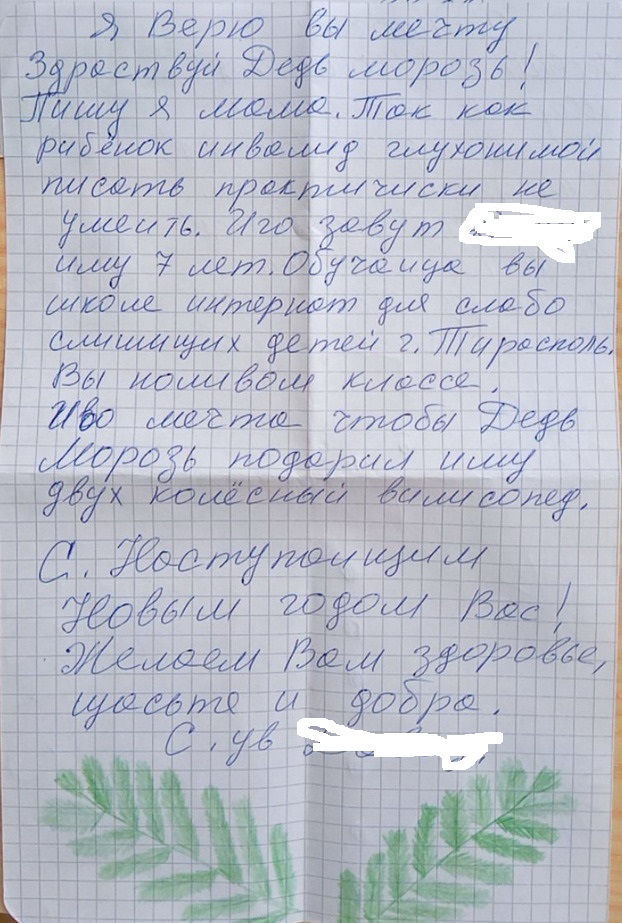 Я Верю вы мечту
Здраствуй Дедь морозь!
Пишу я мама. Так как
рибёнок инвалид глухонимой
писать практически не
умеить. Иго завут
иму 7 лет. Обучаица вы
школе интернат для слабо
слишищих детей г. Тирасполь.
Вы ноливом классе.
Иво мечта чтобы Дедь
Морозь подарил иму
двух колёсный вилисопед.
С. Наступаищим
Новым годом Вас!
Желаем Вам здоровье,
щасьте и добра.
С. ув